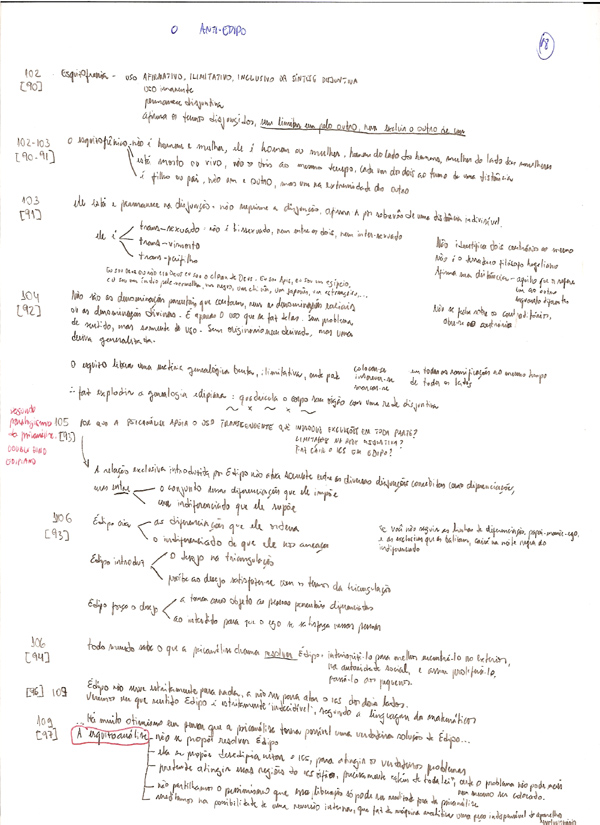 O ANTI-ÉDIPO
18
102
[90]
Esquizofrenia - uso AFIRMATIVO, ILIMITATIVO, INCLUSIVO DA SÍNTESE DISJUNTIVA
uso imanente
permanece disjuntiva
afirma os termos disjungidos, sem limitar um pelo outro, nem excluir o outro de um
102-103
[90-91]
O esquizofrênico não é homem e mulher, ele é homem ou mulher, homem do lado dos homens, mulher do lado das mulheres
está morto ou vivo, não os dois ao mesmo tempo, cada um dos dois ao termo de uma distância
é filho ou pai, não um e outro, mas um na extremidade do outro
103
[91]
ele está e permanece na disjunção - não suprime a disjunção, afirma-a por sobrevôo de uma distância indivisível.
ele é
trans-sexuado - não é bissexuado, nem entre os dois, nem inter-sexuado
trans-vimorto
trans-paifilho
Não identifica dois contrários ao mesmo
Não é o denodado filósofo hegeliano
Afirma sua distância - aquilo que os separa
um ao outro
enquanto diferentes
Não se fecha sobre os contraditórios,
abre-se ao contrário
104
[92]
Não são as denominações parentais que contam, nem as denominações raciais
ou as denominações divinas. É apenas o uso que se faz delas. Sem problema
de sentido, mas somente de uso. Sem originário nem derivado, mas uma
deriva generalizada.
O esquizo libera uma matéria genealógica bruta, ilimitativa, onde pode
colocar-se
inscrever-se
marcar-se
em todas as ramificações ao mesmo tempo
de todos os lados
∴ faz explodir a genealogia edipiana: quadricula o corpo sem órgãos com uma rede disjuntiva
segundo
paralogismo
da psicanálise:
DOUBLE BIND
EDIPIANO
105
[93]
POR QUE A PSICANÁLISE APOIA O USO TRANSCENDENTE QUE INTRODUZ EXCLUSÕES EM TODA PARTE?
LIMITAÇÕES NA REDE DISJUNTIVA?
FAZ CAIR O ICS EM ÉDIPO?
A relação exclusiva introduzida por Édipo não atua somente entre as diversas disjunções concebidas como diferenciações,
mas entre
o conjunto dessas diferenciações que ele impõe
um indiferenciado que ele supõe
106
[93]
Édipo cria
as diferenciações que ele ordena
o indiferenciado de que ele nos ameaça
Se você não seguir as linhas de diferenciação, papai-mamãe-ego,
e as exclusivas que as balizam, cairá na noite negra do
indiferenciado
Édipo introduz
o desejo na triangulação
proíbe ao desejo satisfazer-se com os termos da triangulação
Édipo força o desejo
a tomar como objeto as pessoas parentais diferenciadas
106
[94]
todo mundo sabe o que a psicanálise chama resolver Édipo: interiorizá-lo para melhor encontrá-lo no exterior,
na autoridade social, e assim proliferá-lo,
passá-lo aos pequenos.
[96] 109
Édipo não serve estritamente para nada, a não ser para atar o ics dos dois lados.
Veremos em que sentido Édipo é estritamente "indecidível", segundo a linguagem dos matemáticos
109
[97]
...Há muito otimismo em pensar que a psicanálise torna possível uma verdadeira solução de Édipo...
A esquizoanálise
não se propõe resolver Édipo
ela se propõe desedipianizar o ICS, para atingir os verdadeiros problemas
pretende atingir essas regiões do ics órfão, precisamente "além de toda lei", onde o problema não pode mais
nem mesmo ser colocado.
não partilhamos o pessimismo que essa libertação só pode ser realizada fora da psicanálise
acreditamos na possibilidade de uma reversão interna, que faz da máquina analítica uma peça indispensável do aparelho
revolucionário